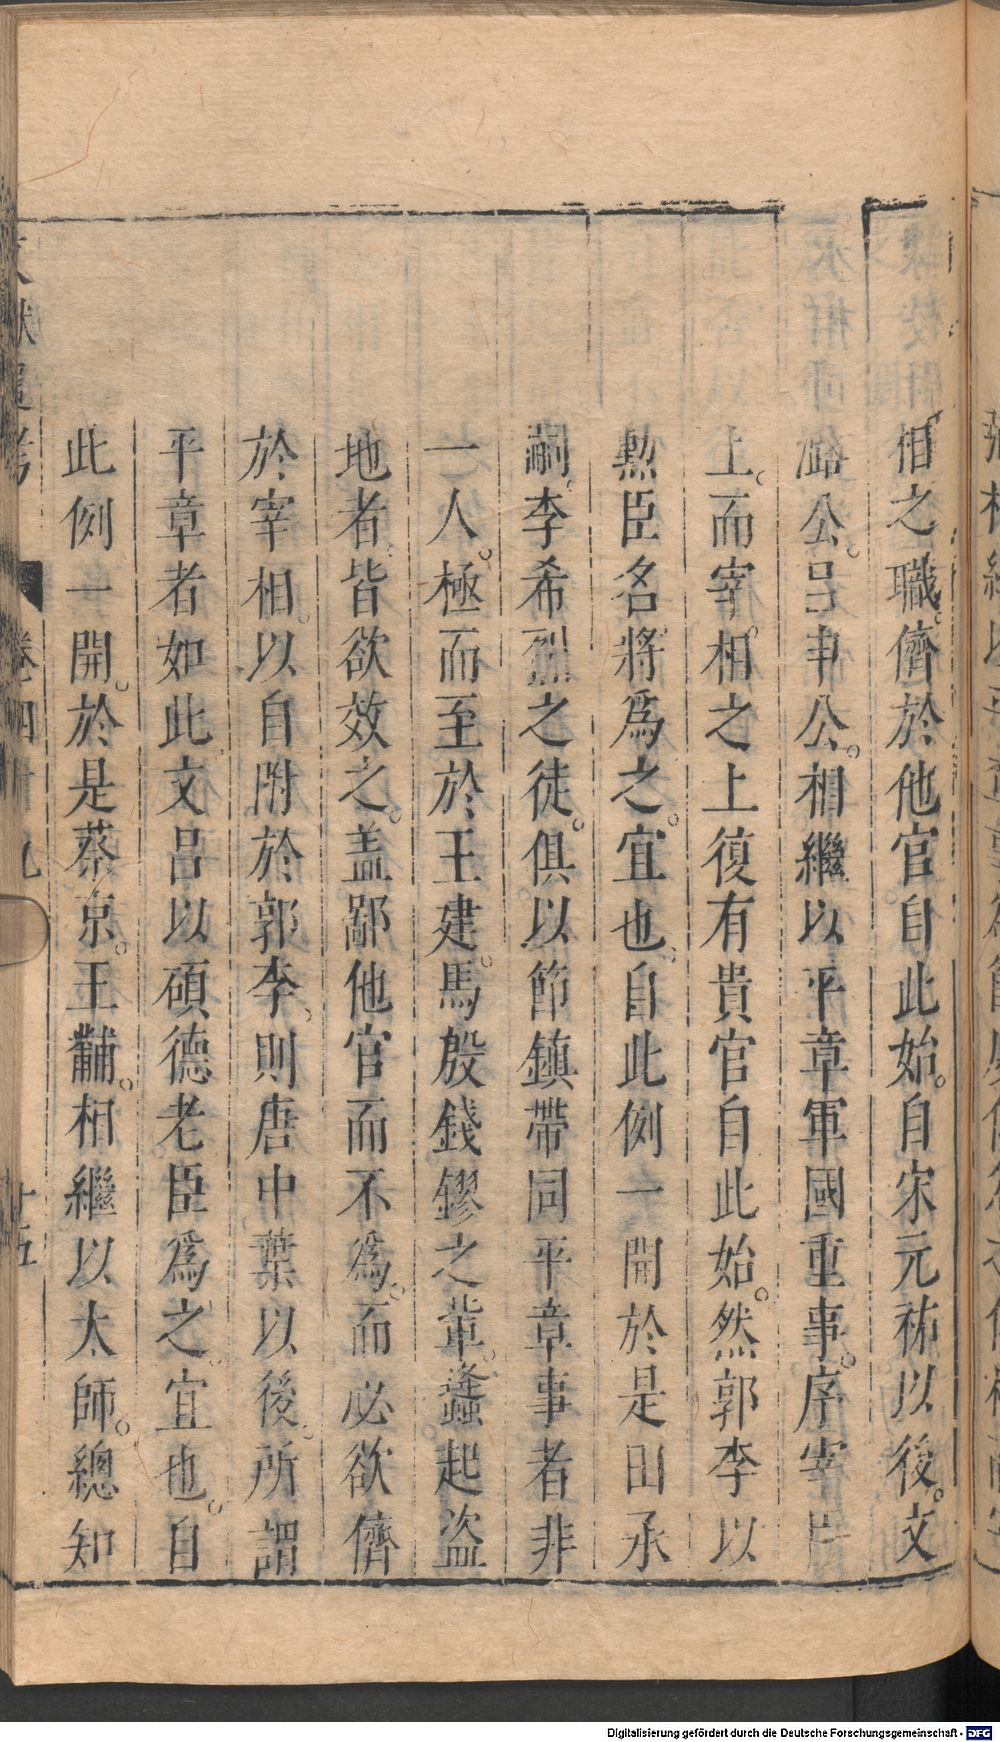 相之職。儕於他官自此始。自宋元祐以後。文
潞公。呂申公。相繼以平章軍國重事。序宰臣
上。而宰相之上復有貴官自此始。然郭李以
勲臣名將爲之。宜也。自此例一開於是田承
嗣。李希烈之徒。俱以節鎮帶同平章事者非
一人。極而至於王建。馬殷錢鏐之輩。蠭起盗
地者。皆欲效之。盖鄙他官而不爲。而必欲儕
於宰相。以自附於郭李。則唐中葉以後。所謂
平章者如此。文呂以碩德老臣爲之。宜也。自
此例一開。於是蔡京。王黼。相繼以太師。總知
文獻通考
卷四十九
十五
Digitalisierung gefördert durch die Deutsche Forschungsgemeinschaft - DFG